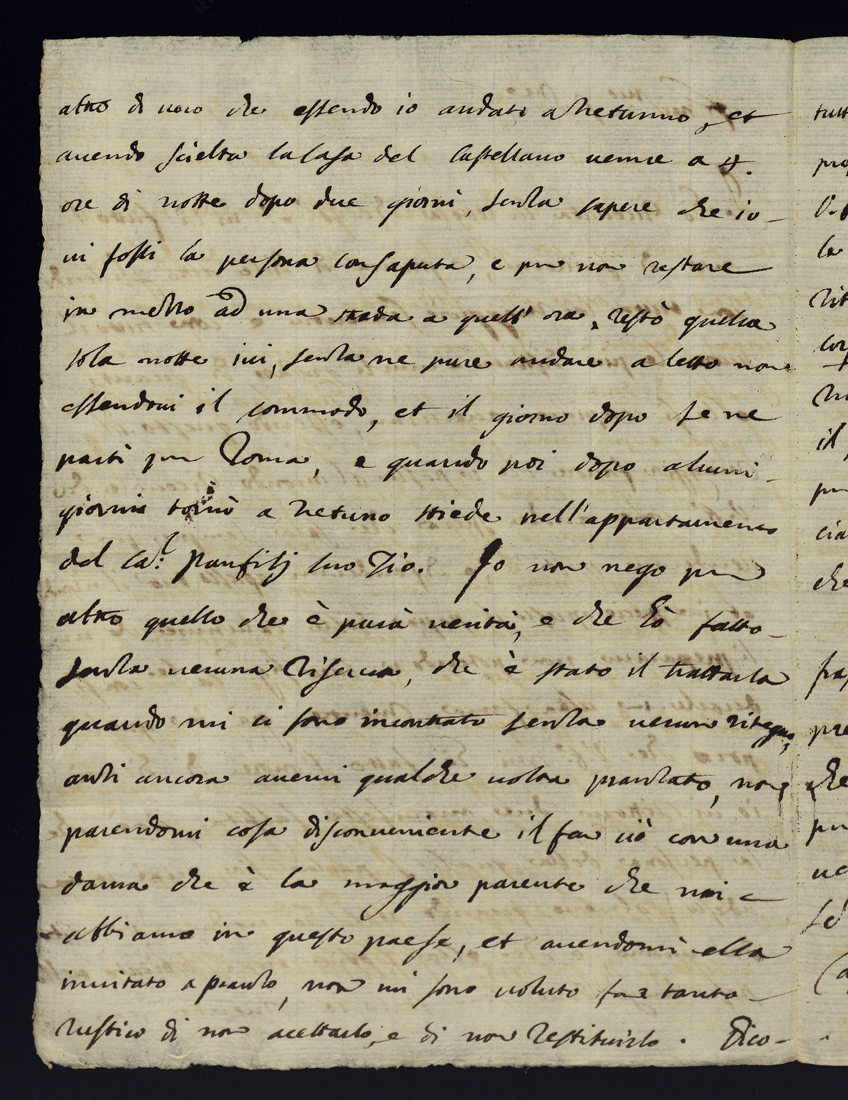 altro di vero che essendo io andato a Netunno, et
auendo scielta la Casa del Castellano uenne a 4.
ore di notte dopo due giorni, senza sapere che io
ui fossi la persona consaputa, e per non restare
in mezzo ad una strada a quell' ora, restò quella
sola notte iui, senza ne pure andare a letto non
essendoui il commodo, et il giorno dopo se ne
partì per Roma, e quando poi dopo alcuni
giorni tornò a Netuno stiede nell'appartamento
del Ca:l Panfilj suo Zio. Io non nego per
altro quello che è pura uerità, e che hò fatto
senza ueruna riserua, che è stato il trattarla
quando mi ci sono incontrato senza uerun ritegno,
anzi ancora auerui qualche uolta pranzato, non
parendomi cosa disconueniente il far ciò con una
dama che è la maggior parente che noi
abbiamo in questo paese, et auendomi ella
inuitato a pranzo, non mi sono uoluto far tanto
rustico di non accettarlo, e di non restituirlo. Dico
tutt
pro
la
rit
cor
il
per
cia
che
pre
che
per